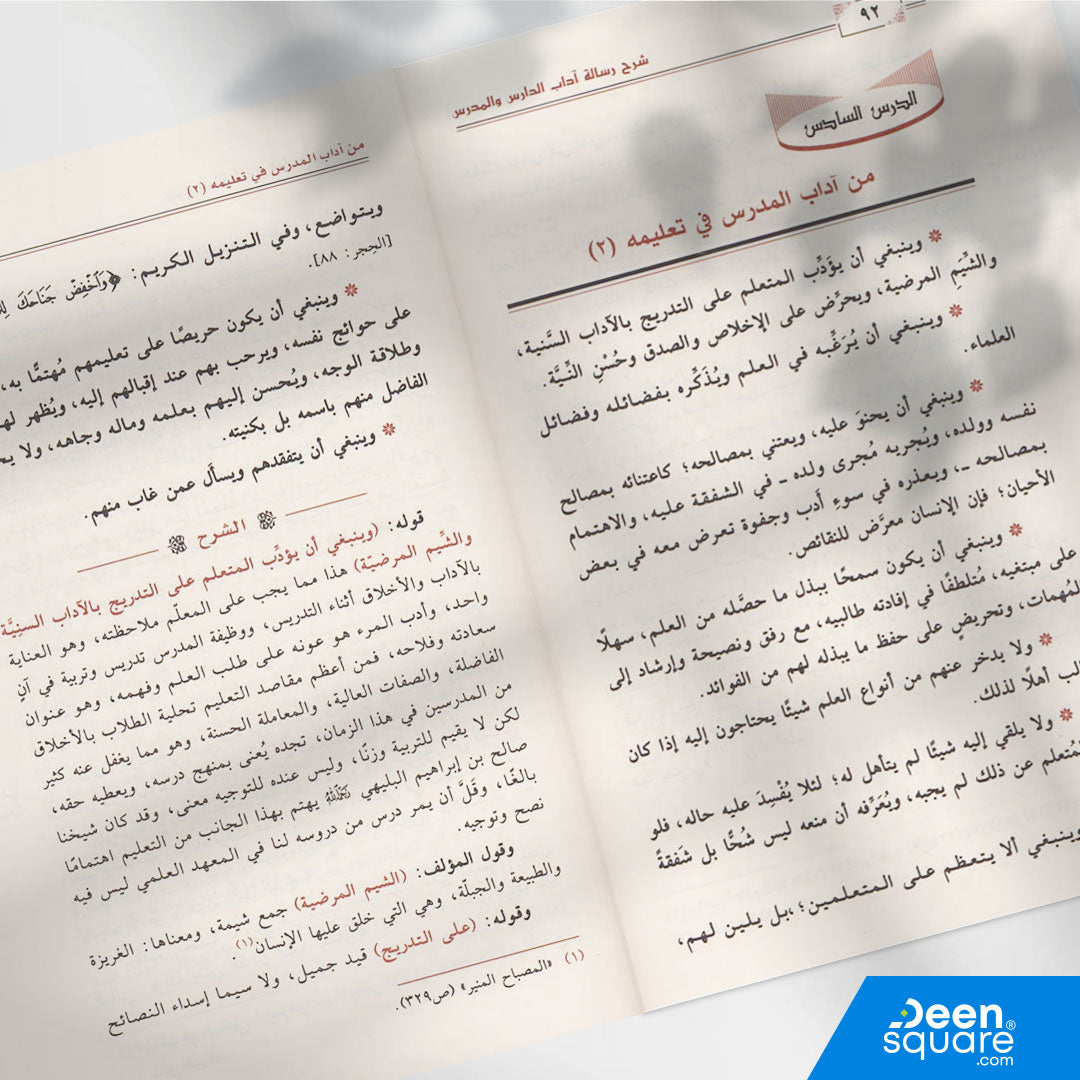 ٩٢
شرح رسالة آداب الدارس والمدرس
الدرس السادس
من آداب المدرس في تعليمه (٢)
* وينبغي أن يؤَدِّب المتعلم على التدريج بالآداب السَّنية،
والشِّيَمِ المرضية، ويحرِّض على الإخلاص والصدق وحُسْنِ النِّيَّة.
* وينبغي أن يُرَغِّبه في العلم ويُذَكِّره بفضائله وفضائل
العلماء.
* وينبغي أن يحنوَ عليه، ويعتني بمصالحه؛ كاعتنائه بمصالح
نفسه وولده، ويُجريه مُجرى ولده ـ في الشفقة عليه، والاهتمام
بمصالحه ـ، ويعذره في سوءِ أدب وجفوة تعرض معه في بعض
الأحيان؛ فإن الإنسان معرَّض للنقائص.
* وينبغي أن يكون سمحًا ببذل ما حصَّله من العلم، سهلًا
على مبتغيه، مُتلطفًا في إفادته طالبيه، مع رفق ونصيحة وإرشاد إلى
المُهمات، وتحريضٍ على حفظ ما يبذله لهم من الفوائد.
* ولا يدخر عنهم من أنواع العلم شيئًا يحتاجون إليه إذا كان
الب أهلًا لذلك.
* ولا يلقي إليه شيئًا لم يتأهل له؛ لئلا يُفْسِدَ عليه حاله، فلو
المُتعلم عن ذلك لم يجبه، ويُعَرِّفه أن منعه ليس شُحًّا بل شَفقةً
وينبغي ألا يتعظم على المتعلمين؛ بل يلين لهم،
من آداب المدرس في تعليمه (٢)
ويتواضع، وفي التنزيل الكريم: ﴿وَاخْفِضْ جَنَاحَكَ
[الحِجر: ٨٨].
* وينبغي أن يكون حريصًا على تعليمهم مُهتمًّا به،
على حوائج نفسه، ويرحب بهم عند إقبالهم إليه، ويُظهر
وطلاقة الوجه، ويُحسن إليهم بعلمه وماله وجاهه، ولا
الفاضل منهم باسمه بل بكنيته.
* وينبغي أن يتفقدهم ويسأل عمن غاب منهم.
الشرح
قوله: (وينبغي أن يؤدِّب المتعلم على التدريج بالآداب السنِيَّة
والشِّيم المرضيّة) هذا مما يجب على المعلّم ملاحظته، وهو العناية
بالآداب والأخلاق أثناء التدريس، ووظيفة المدرس تدريس وتربية في آنٍ
واحد، وأدب المرء هو عونه على طلب العلم وفهمه، وهو عنوان
سعادته وفلاحه، فمن أعظم مقاصد التعليم تحلية الطلاب بالأخلاق
الفاضلة، والصفات العالية، والمعاملة الحسنة، وهو مما يغفل عنه كثير
من المدرسين في هذا الزمان، تجده يُعنى بمنهج درسه، ويعطيه حقه،
لكن لا يقيم للتربية وزنًا، وليس عنده للتوجيه معنى، وقد كان شيخنا
صالح بن إبراهيم البليهي رحمه الله يهتم بهذا الجانب من التعليم اهتمامًا
بالغًا، وقَلَّ أن يمر درس من دروسه لنا في المعهد العلمي ليس فيه
نصح وتوجيه.
وقول المؤلف: (الشيم المرضية) جمع شيمة، ومعناها: الغريزة
والطبيعة والجبلّة، وهي التي خلق عليها الإنسان(١).
وقوله: (على التدريج) قيد جميل، ولا سيما إسداء النصائح
(١) «المصباح المنير» (ص٣٢٩).
Deen
square®
.com